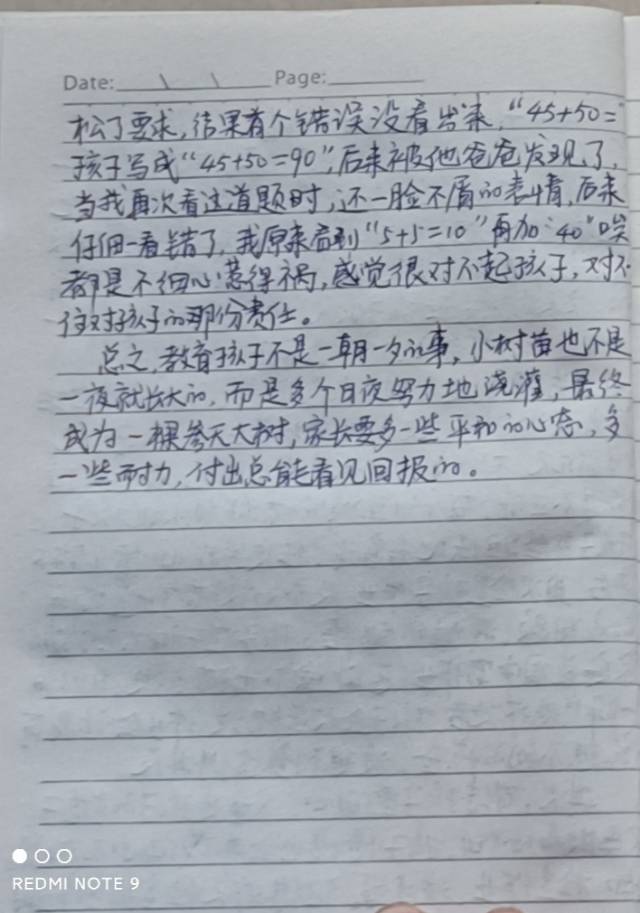 Date: \ \ Page:
松了要求，结果有个错误没看出来，“45+50=”
孩子写成“45+50=90”，后来被他爸爸发现了，
当我再次看这道题时，还一脸不屑的表情，后来
仔细一看错了，我原来看到“5+5=10”再加“40”唉
都是不细心惹得祸，感觉很对不起孩子，对不
住对孩子的那份责任。
总之，教育孩子不是一朝一夕的事，小树苗也不是
一夜就长大的，而是多个日夜努力地浇灌，最终
成为一棵参天大树，家长要多一些平和的心态，多
一些耐力，付出总能看见回报的。
REDMI NOTE 9